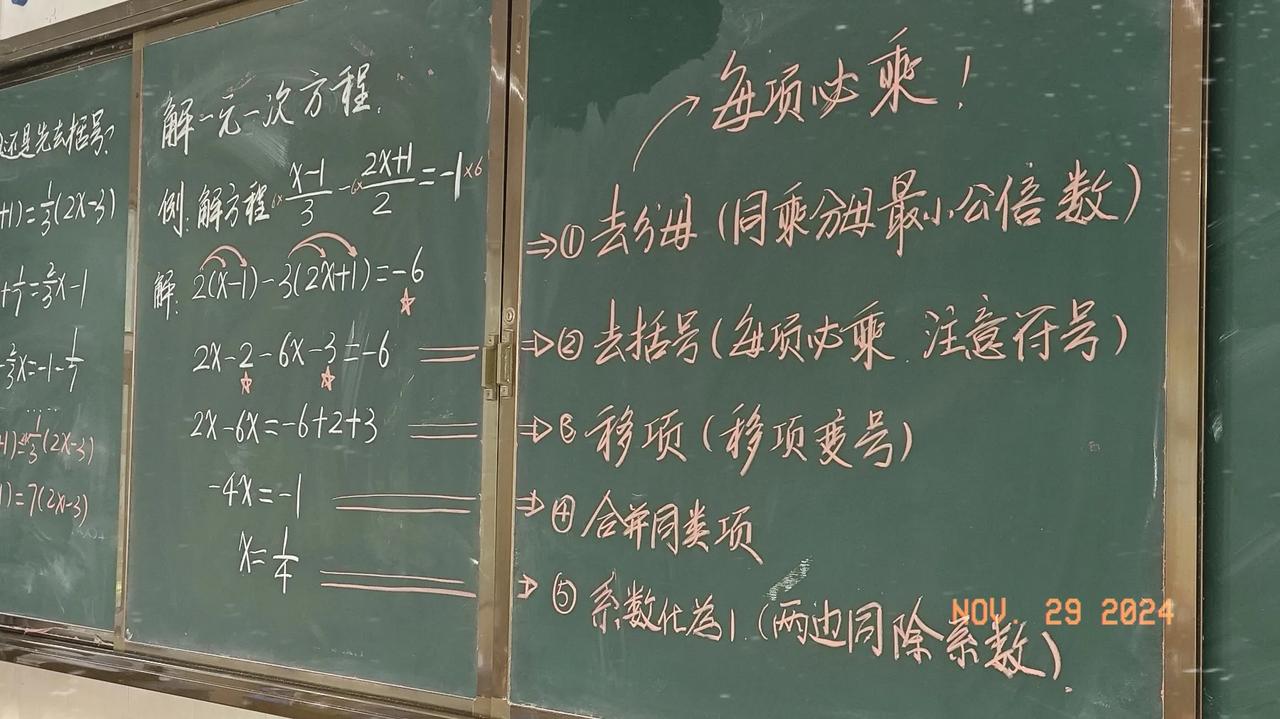 还是先去括号?
+1)=1/3(2x-3)
+1/7=2/3x-1
-2/3x=-1-1/7
......
+1)=1/3(2x-3)
1)=7(2x-3)
解一元一次方程.
例:解方程 6× (x-1)/3 - 6× (2x+1)/2 = -1 ×6
解: 2(x-1)-3(2x+1)=-6
2x-2-6x-3=-6
2x-6x=-6+2+3
-4x=-1
x=1/4
每项必乘!
⇒①去分母(同乘分母最小公倍数)
⇒②去括号(每项必乘.注意符号)
⇒③移项(移项变号)
⇒④合并同类项
⇒⑤系数化为1(两边同除系数).
NOV. 29 2024